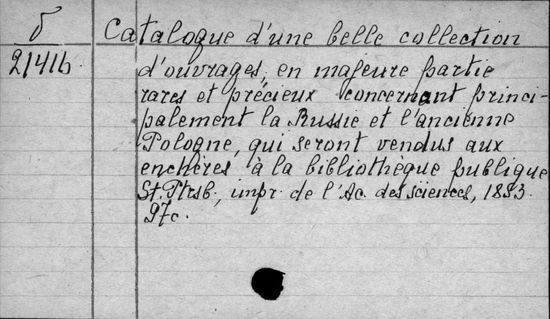 δ Catalogue d'une belle collection
21416 d'ouvrages, en majeure partie
rares et précieux concernant princi-
palement la Russie et l'ancienne
Pologne, qui seront vendus aux
enchères à la bibliothèque publique
St. Ptrsb., impr. de l'Ac. des sciences, 1853.
97c.